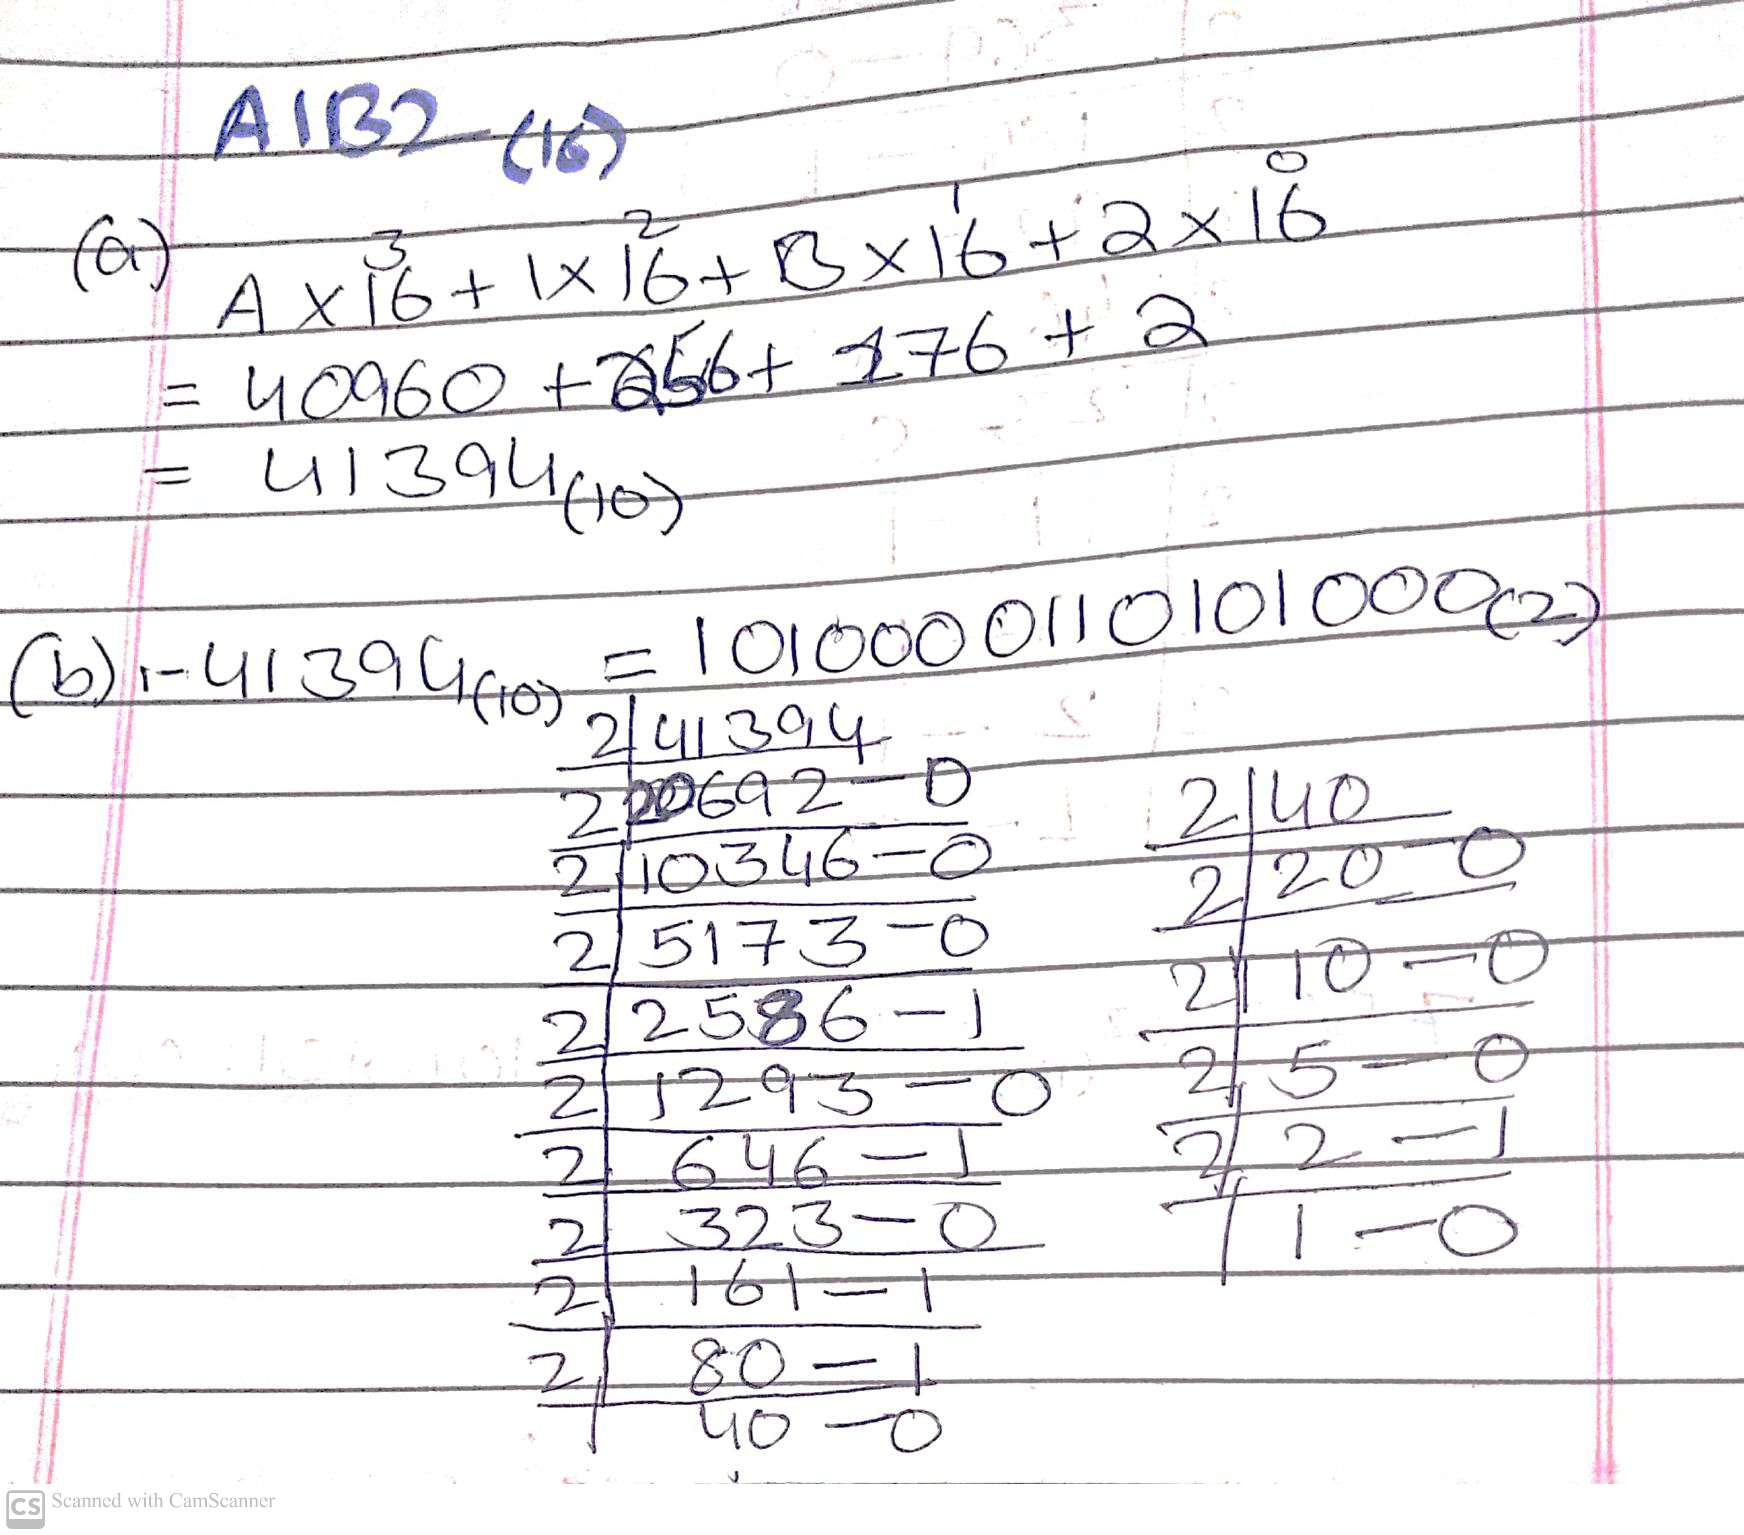 A1B2 (16)
(a) A x 16³ + 1 x 16² + B x 16¹ + 2 x 16⁰
= 40960 + 256 + 176 + 2
= 41394 (10)
(b) :- 41394 (10) = 1010000110101000 (2)
2 | 41394
2 | 20692 - 0
2 | 10346 - 0
2 | 5173 - 0
2 | 2586 - 1
2 | 1293 - 0
2 | 646 - 1
2 | 323 - 0
2 | 161 - 1
2 | 80 - 1
40 - 0
2 | 40
2 | 20 - 0
2 | 10 - 0
2 | 5 - 0
2 | 2 - 1
1 - 0
CS Scanned with CamScanner